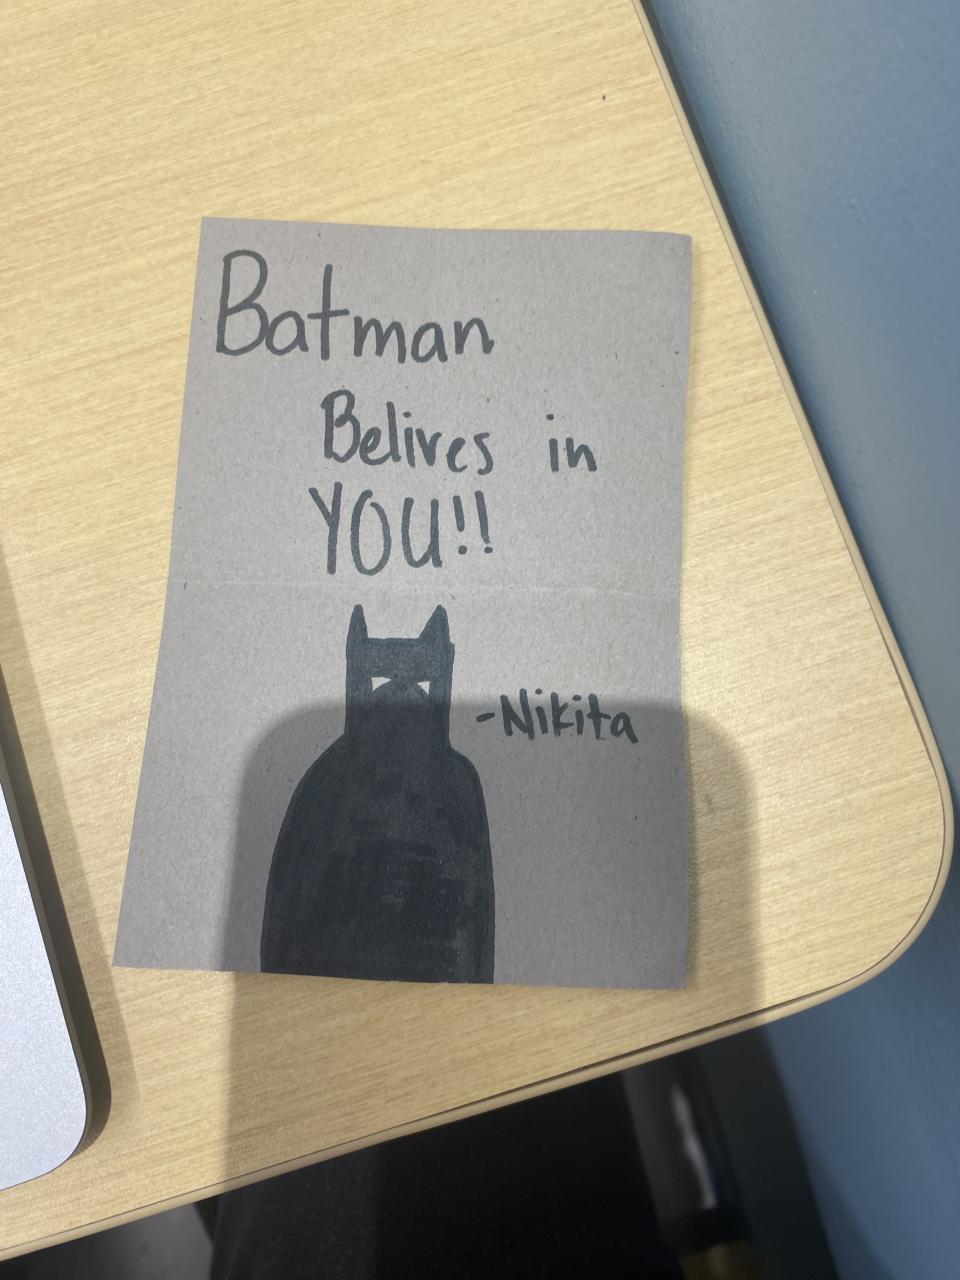 Batman
Belives in
YOU!!
-Nikita